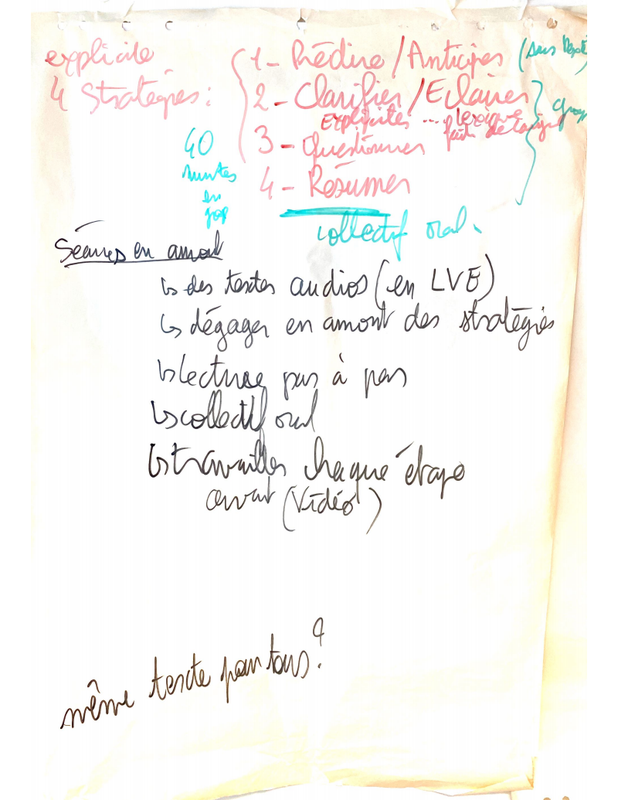 explicite
4 Stratégies :
1 - Prédire / Anticiper (sans
2 - Clarifier / Eclairer
explicites ... lexique
3 - Questionner
4 - Résumer
40
minutes
en
collectif oral.
Séances en amont
↳ des textes audios (en LVE)
↳ dégager en amont des stratégies
↳ lecture pas à pas
↳ collectif oral
↳ travailler chaque étape
avant (Vidéo)
même texte pour tous ?